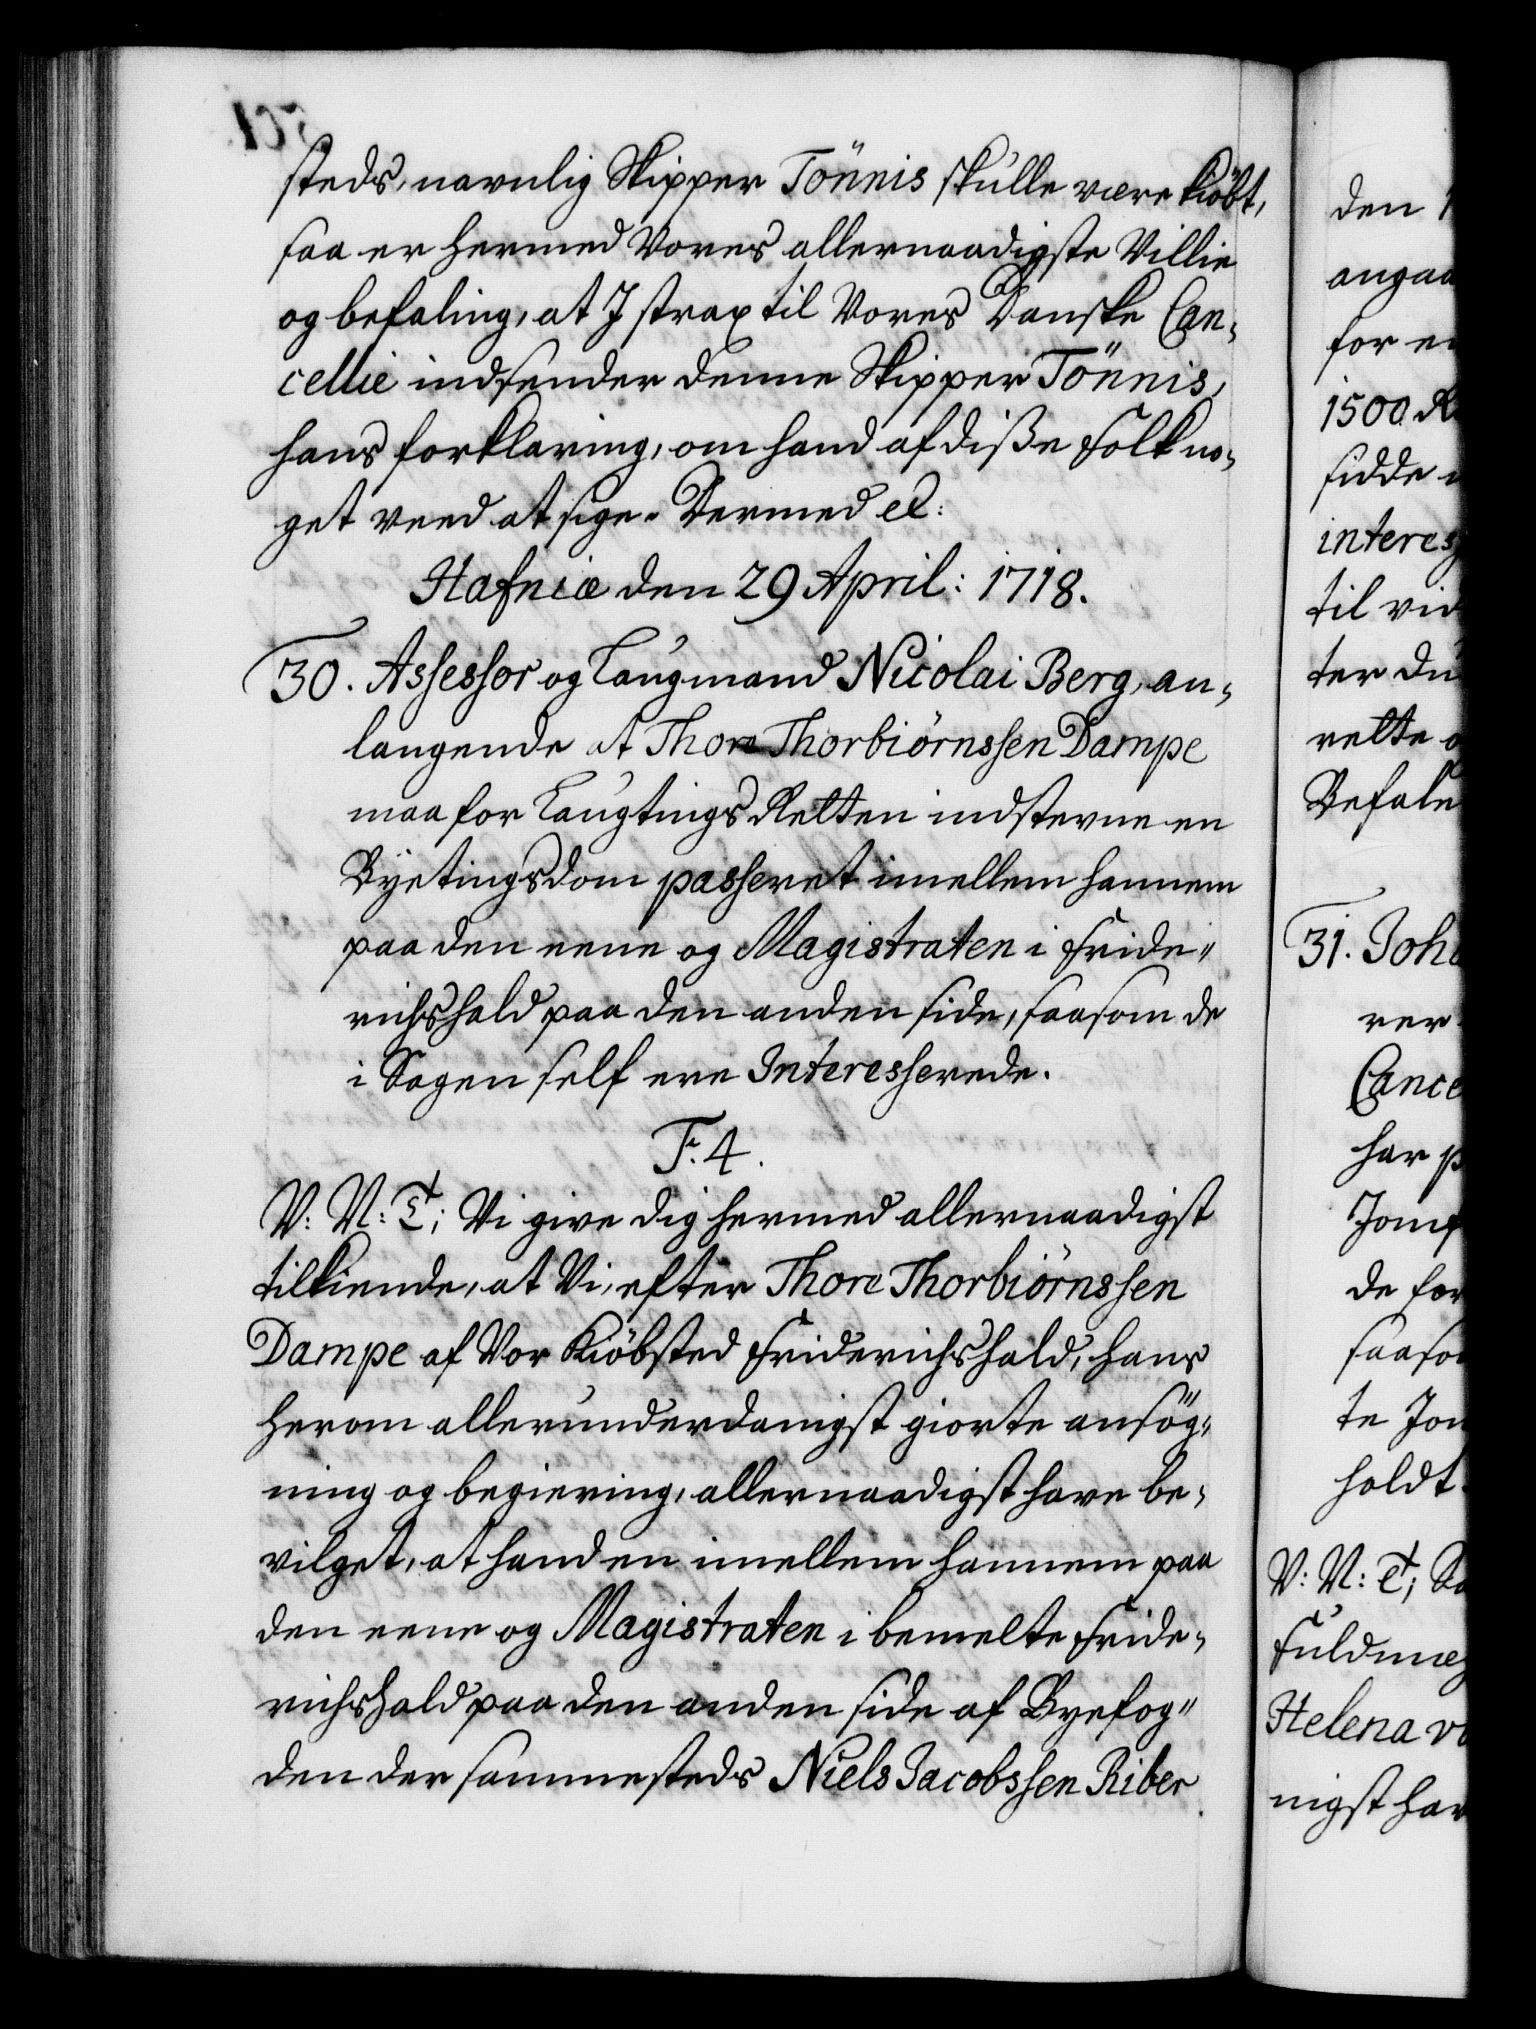 steds, navnlig Skipper Tönnis skulle være kiöbt,
saa er hermed Vores allernaadigste Villie
og befaling, at I strax til Vores Danske Can-
cellie indsender denne Skipper Tönnis,
hans forklaring, om hand af disse Folk no-
get veed at sige. Dermed etc:
Hafniæ den 29 April: 1718.
30. Assessor og Laugmand Nicolai Berg, an-
langende at Thore Thorbiörnssen Dampe
maa for Laugtings Retten indstevne en
Byetingsdom passeret imellem hannem
paa den eene og Magistraten i Fride-
richshald paa den anden side, saasom de
i Sagen self ere Interesserede.
F: 4.
V: N: Et; Vi give dig hermed allernaadigst
tilkiende, at Vi, efter Thore Thorbiörnssen
Dampe af Vor Kiöbsted Friderichshald, hans
herom allerunderdanigst giorte ansög-
ning og begiering, allernaadigst have be-
vilget, at hand en imellem hannem paa
den eene og Magistraten i bemelte Fride-
richshald paa den anden side af Byefog-
den der sammesteds Niels Jacobssen Riber
den
angaa
for
1500
sidde
til
ter
velte
Befale
31. Joh
ver
Cance
har
Jomf
de for
te
holdt
V: N: et;
Fuldmæg
Helena
nigst hav